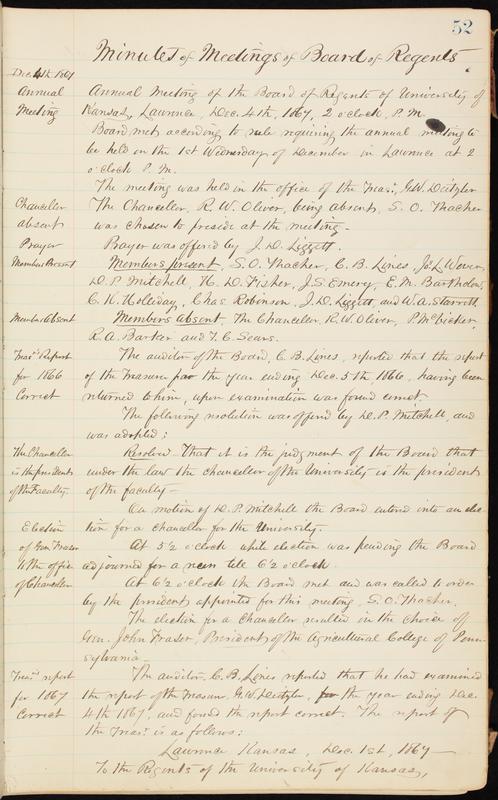 52
Minutes of Meetings of Board of Regents.
Dec. 4th 1867
Annual Meeting of the Board of Regents of University of
Annual
Kansas, Lawrence, Dec. 4th, 1867, 2 o'clock, P.M.
Meeting
Board met according to rule requiring the annual meeting to
be held on the 1st Wednesday of December in Lawrence at 2
o'clock P.M.
The meeting was held in the office of the Treas., G.W. Deitzler
Chancellor
The Chancellor, R. W. Oliver, being absent, S. O. Thacher
absent
was chosen to preside at the meeting.
Prayer
Prayer was offered by J. D. Liggett.
Members Present
Members present, S. O. Thacher, C. B. Lines, J. L. Wever,
D. P. Mitchell, H. D. Fisher, J. S. Emery, E. M. Bartholow,
C. K. Holliday, Chas Robinson, J. D. Liggett, and W. A. Starrett
Members Absent
Members absent, The Chancellor, R. W. Oliver, P. McVicker,
R. A. Barker and T. C. Sears.
Treas' Report
The auditor of the Board, C. B. Lines, reported that the report
for 1866
of the Treasurer for the year ending Dec. 5th, 1866, having been
Correct
returned to him, upon examination was found correct.
The following resolution was offered by D. P. Mitchell, and
was adopted;
The Chancellor
Resolved That it is the judgment of the Board that
is the president
under the law the chancellor of the University is the president
of the Faculty.
of the faculty—
On motion of D. P. Mitchell the Board entered into an elec-
Election
tion for a chancellor for the University.
of Gen. Fraser
At 5½ o'clock while election was pending the Board
to the office
adjourned for a recess till 6½ o'clock.
of Chancellor
At 6½ o'clock the Board met and was called to order
by the president appointed for this meeting, S. O. Thacher.
The election for a chancellor resulted in the choice of
Gen. John Fraser, President of the Agricultural College of Penn-
sylvania.
Treas' report
The auditor, C. B. Lines reported that he had examined
for 1867
the report of the Treasurer, G. W. Deitzler, for the year ending Dec.
Correct
4th 1867, and found the report correct. The report of
the Treas. is as follows:
Lawrence Kansas, Dec. 1st, 1867—
To the Regents of the University of Kansas,